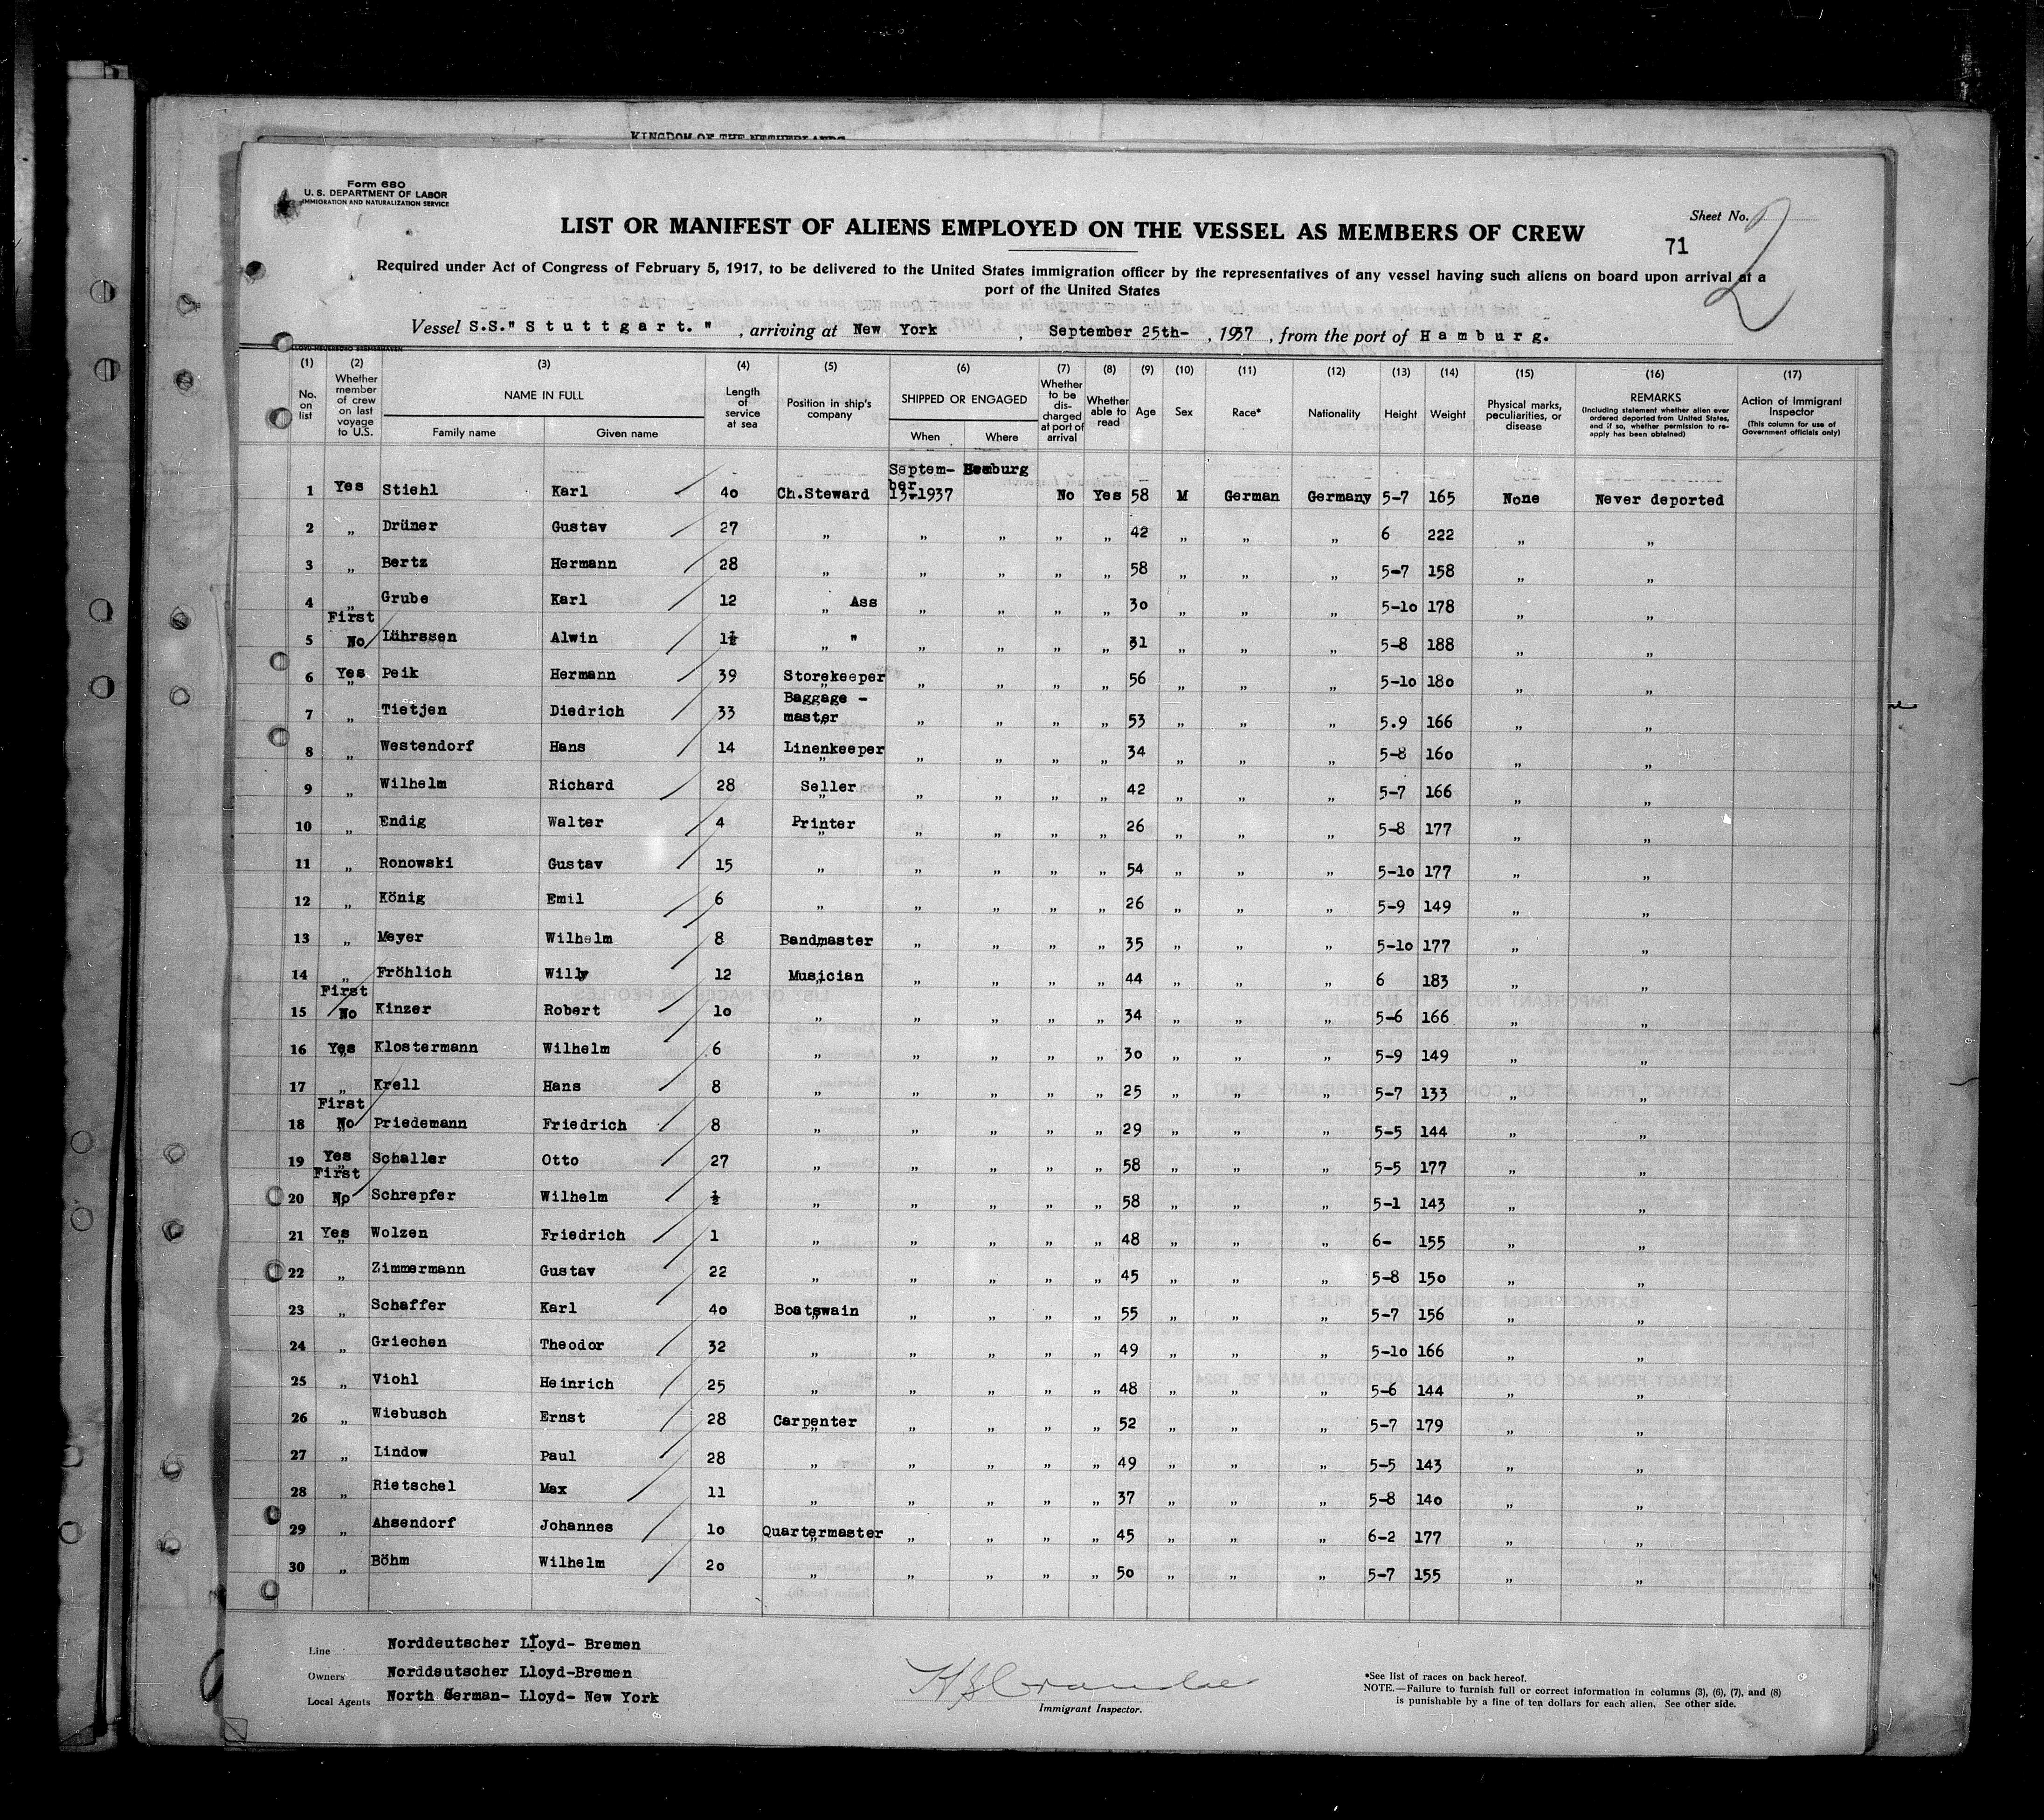 KINGDOM OF THE NETHERLANDS
Form 680
U. S. DEPARTMENT OF LABOR
IMMIGRATION AND NATURALIZATION SERVICE
Sheet No. 2
LIST OR MANIFEST OF ALIENS EMPLOYED ON THE VESSEL AS MEMBERS OF CREW
71
Required under Act of Congress of February 5, 1917, to be delivered to the United States immigration officer by the representatives of any vessel having such aliens on board upon arrival at a
port of the United States
Vessel S.S." S t u t t g a r t. " , arriving at New York , September 25th- , 1937 , from the port of H a m b u r g.
(1) (2) (3) (4) (5) (6) (7) (8) (9) (10) (11) (12) (13) (14) (15) (16) (17)
No. on list
Whether member of crew on last voyage to U.S.
NAME IN FULL
Family name Given name
Length of service at sea
Position in ship's company
SHIPPED OR ENGAGED
When Where
Whether to be discharged at port of arrival
Whether able to read
Age Sex Race* Nationality Height Weight
Physical marks, peculiarities, or disease
REMARKS
(Including statement whether alien ever ordered deported from United States, and if so, whether permission to reapply has been obtained)
Action of Immigrant Inspector
(This column for use of Government officials only)
Septem- Hamburg
ber
1 Yes Stiehl Karl 40 Ch.Steward 13-1937 No Yes 58 M German Germany 5-7 165 None Never deported
2 „ Drüner Gustav 27 „ „ „ „ „ 42 „ „ „ 6 222 „ „
3 „ Bertz Hermann 28 „ „ „ „ „ 58 „ „ „ 5-7 158 „ „
4 „ Grube Karl 12 „ Ass „ „ „ „ 30 „ „ „ 5-10 178 „ „
First
5 No Lührssen Alwin 1½ „ " „ „ „ „ 31 „ „ „ 5-8 188 „ „
6 Yes Peik Hermann 39 Storekeeper „ „ „ „ 56 „ „ „ 5-10 180 „ „
Baggage -
7 „ Tietjen Diedrich 33 master „ „ „ „ 53 „ „ „ 5.9 166 „ „
8 „ Westendorf Hans 14 Linenkeeper „ „ „ „ 34 „ „ „ 5-8 160 „ „
9 „ Wilhelm Richard 28 Seller „ „ „ „ 42 „ „ „ 5-7 166 „ „
10 „ Endig Walter 4 Printer „ „ „ „ 26 „ „ „ 5-8 177 „ „
11 „ Ronowski Gustav 15 „ „ „ „ „ 54 „ „ „ 5-10 177 „ „
12 „ König Emil 6 „ „ „ „ „ 26 „ „ „ 5-9 149 „ „
13 „ Meyer Wilhelm 8 Bandmaster „ „ „ „ 35 „ „ „ 5-10 177 „ „
14 „ Fröhlich Willy 12 Musician „ „ „ „ 44 „ „ „ 6 183 „ „
First
15 No Kinzer Robert 10 „ „ „ „ „ 34 „ „ „ 5-6 166 „ „
16 Yes Klostermann Wilhelm 6 „ „ „ „ „ 30 „ „ „ 5-9 149 „ „
17 „ Krell Hans 8 „ „ „ „ „ 25 „ „ „ 5-7 133 „ „
First
18 No Priedemann Friedrich 8 „ „ „ „ „ 29 „ „ „ 5-5 144 „ „
19 Yes Schaller Otto 27 „ „ „ „ „ 58 „ „ „ 5-5 177 „ „
First
20 No Schrepfer Wilhelm ½ „ „ „ „ „ 58 „ „ „ 5-1 143 „ „
21 Yes Wolzen Friedrich 1 „ „ „ „ „ 48 „ „ „ 6- 155 „ „
22 „ Zimmermann Gustav 22 „ „ „ „ „ 45 „ „ „ 5-8 150 „ „
23 „ Schaffer Karl 40 Boatswain „ „ „ „ 55 „ „ „ 5-7 156 „ „
24 „ Griechen Theodor 32 „ „ „ „ „ 49 „ „ „ 5-10 166 „ „
25 „ Viohl Heinrich 25 „ „ „ „ „ 48 „ „ „ 5-6 144 „ „
26 „ Wiebusch Ernst 28 Carpenter „ „ „ „ 52 „ „ „ 5-7 179 „ „
27 „ Lindow Paul 28 „ „ „ „ „ 49 „ „ „ 5-5 143 „ „
28 „ Rietschel Max 11 „ „ „ „ „ 37 „ „ „ 5-8 140 „ „
29 „ Ahsendorf Johannes 10 Quartermaster „ „ „ „ 45 „ „ „ 6-2 177 „ „
30 „ Böhm Wilhelm 20 „ „ „ „ „ 50 „ „ „ 5-7 155 „ „
Line Norddeutscher Lloyd- Bremen
Owners Norddeutscher Lloyd-Bremen
Local Agents North German- Lloyd- New York
Immigrant Inspector.
*See list of races on back hereof.
NOTE.—Failure to furnish full or correct information in columns (3), (6), (7), and (8)
is punishable by a fine of ten dollars for each alien. See other side.